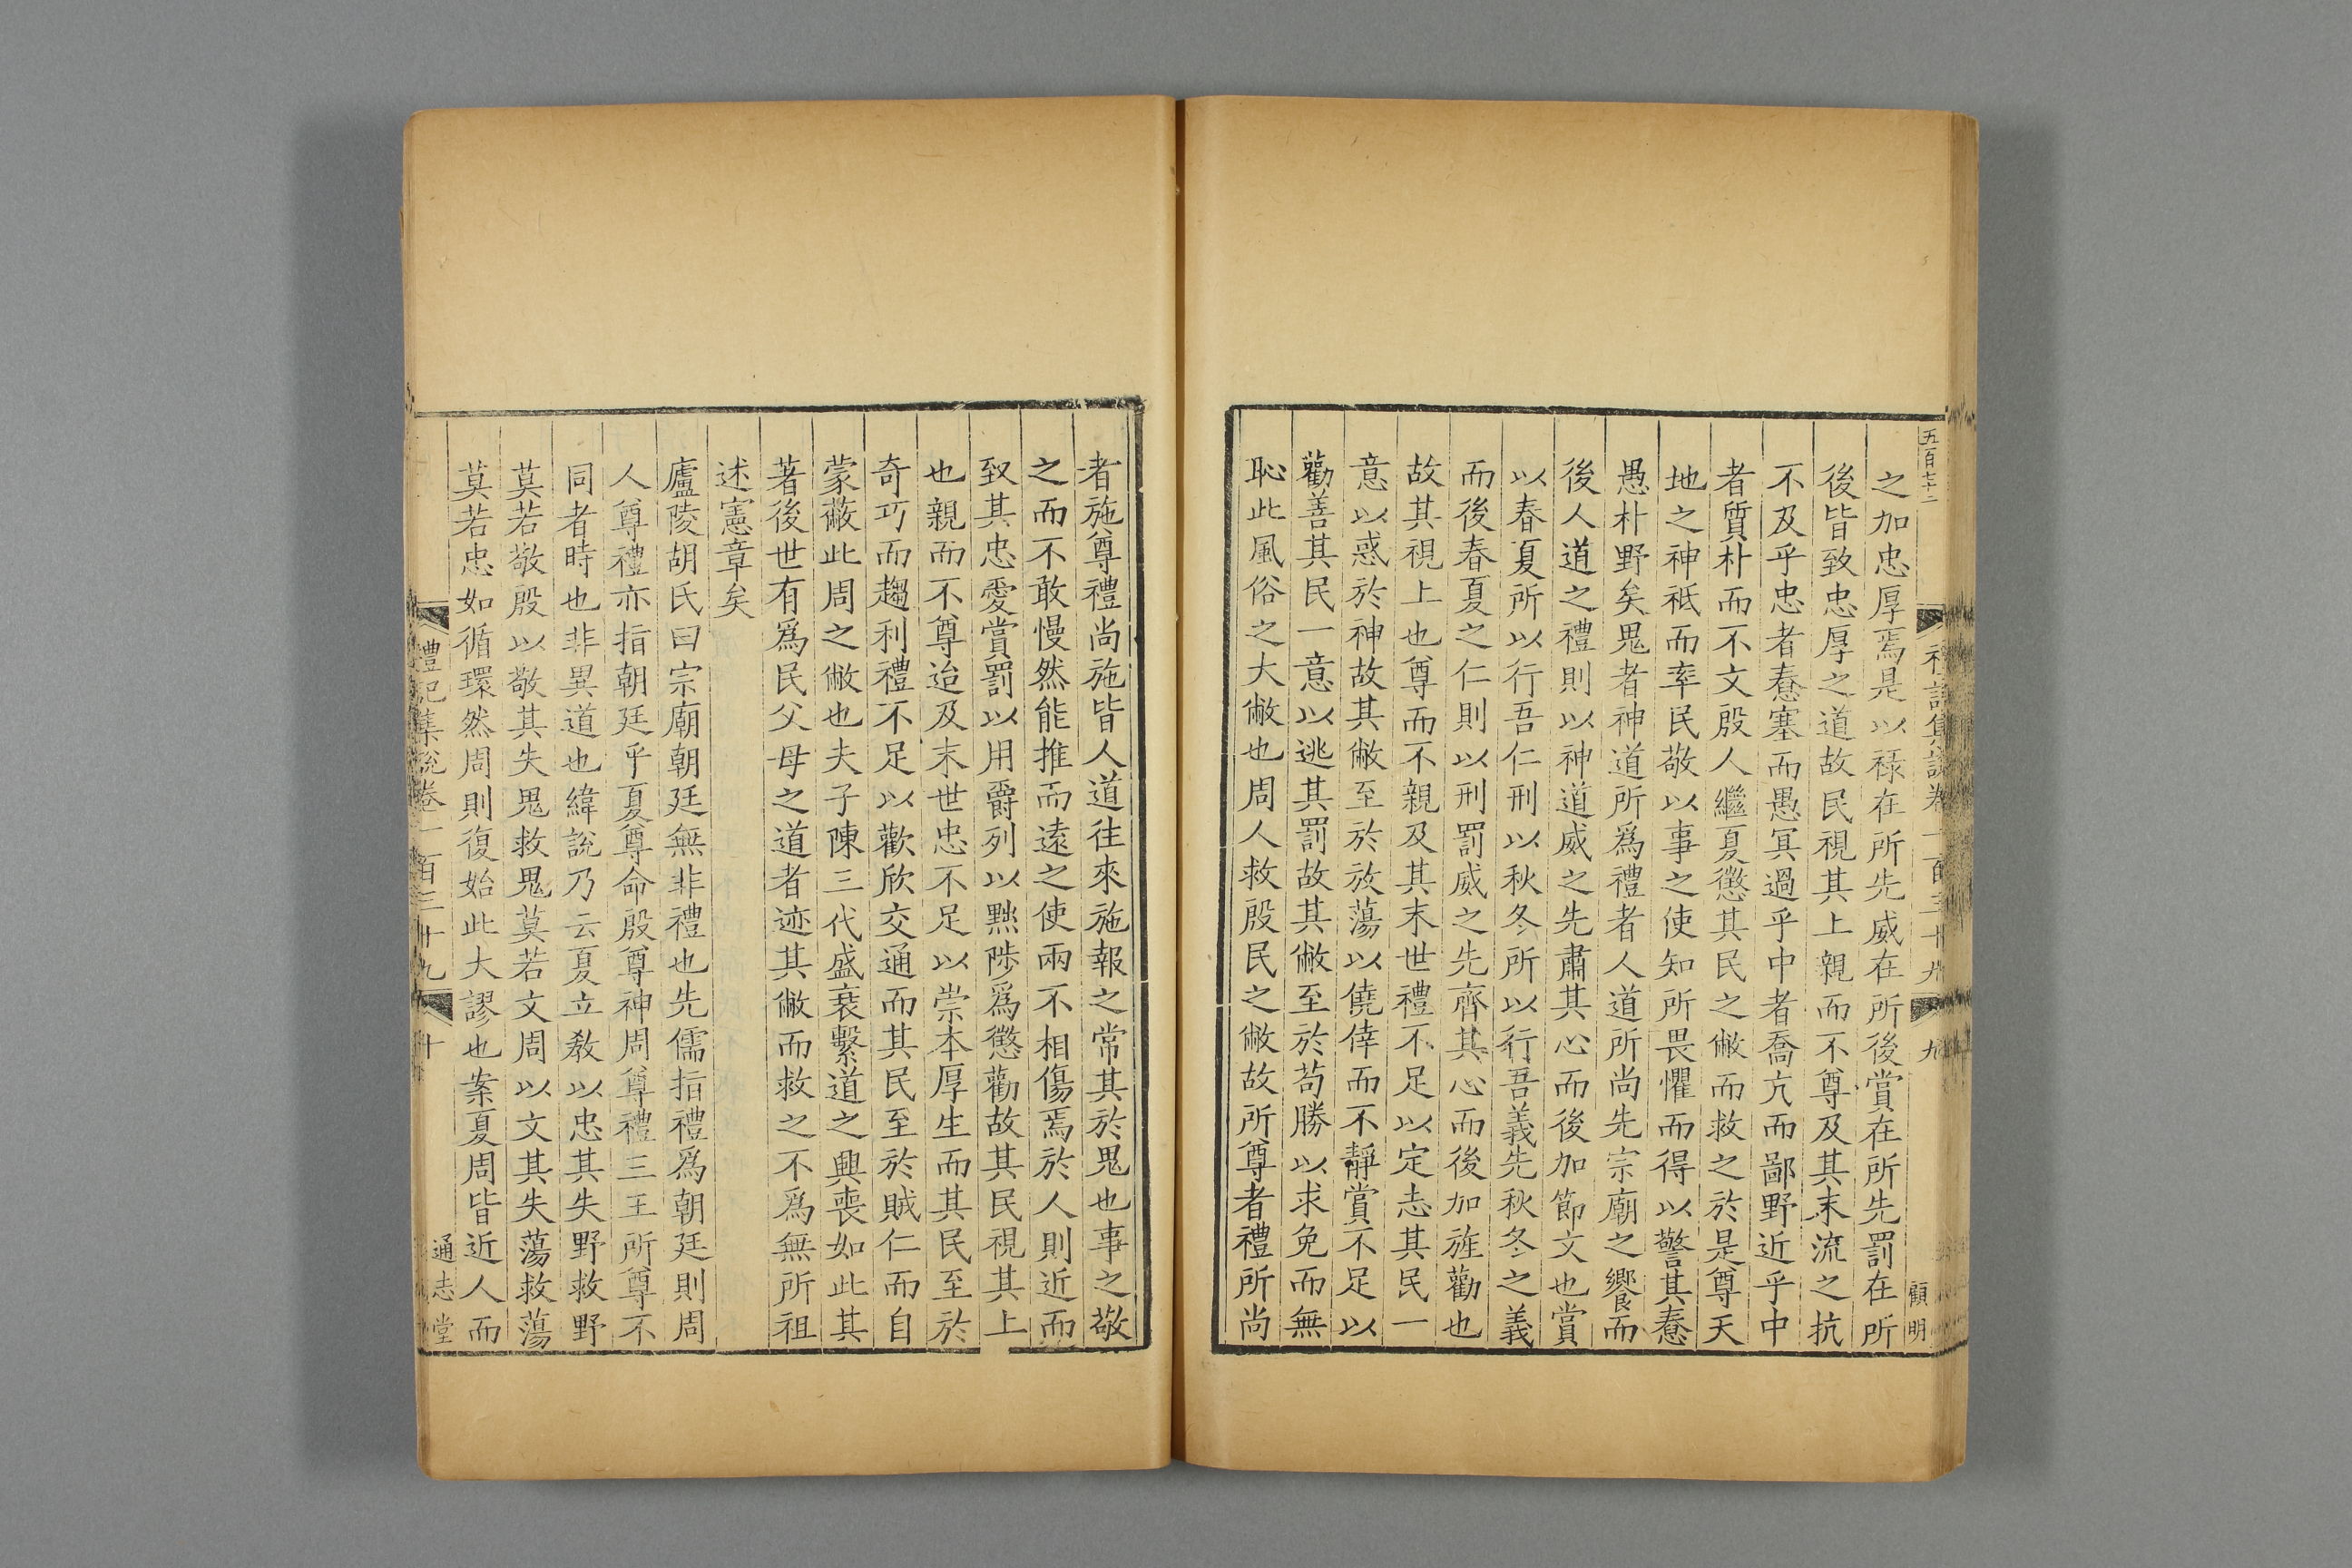 五百七十二
禮記集說卷一百三十九
九
顧明
之加忠厚焉是以祿在所先威在所後賞在所先罰在所
後皆致忠厚之道故民視其上親而不尊及其末流之抗
不及乎忠者惷塞而愚冥過乎中者喬亢而鄙野近乎中
者質朴而不文殷人繼夏懲其民之敝而救之於是尊天
地之神祗而率民敬以事之使知所畏懼而得以警其惷
愚朴野矣鬼者神道所爲禮者人道所尚先宗廟之饗而
後人道之禮則以神道威之先肅其心而後加節文也賞
以春夏所以行吾仁刑以秋冬所以行吾義先秋冬之義
而後春夏之仁則以刑罰威之先齊其心而後加旌勸也
故其視上也尊而不親及其末世禮不足以定志其民一
意以惑於神故其敝至於放蕩以僥倖而不靜賞不足以
勸善其民一意以逃其罰故其敝至於苟勝以求免而無
恥此風俗之大敝也周人救殷民之敝故所尊者禮所尚
者施尊禮尚施皆人道往來施報之常其於鬼也事之敬
之而不敢慢然能推而遠之使兩不相傷焉於人則近而
致其忠愛賞罰以用爵列以黜陟爲懲勸故其民視其上
也親而不尊迨及末世忠不足以崇本厚生而其民至於
奇巧而趨利禮不足以歡欣交通而其民至於賊仁而自
蒙蔽此周之敝也夫子陳三代盛衰繫道之興喪如此其
著後世有爲民父母之道者迹其敝而救之不爲無所祖
述憲章矣
廬陵胡氏曰宗廟朝廷無非禮也先儒指禮爲朝廷則周
人尊禮亦指朝廷乎夏尊命殷尊神周尊禮三王所尊不
同者時也非異道也緯說乃云夏立教以忠其失野救野
莫若敬殷以敬其失鬼救鬼莫若文周以文其失蕩救蕩
莫若忠如循環然周則復始此大謬也案夏周皆近人而
禮記集說卷一百三十九
十
通志堂